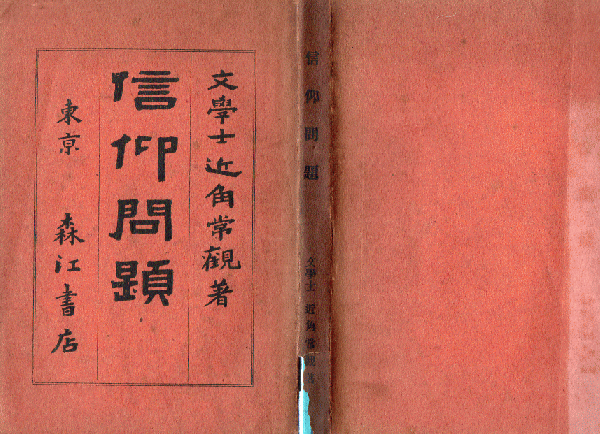 文學士近角常觀著
信仰問題
東京 森江書店
信仰問題
文學士 近角常觀著